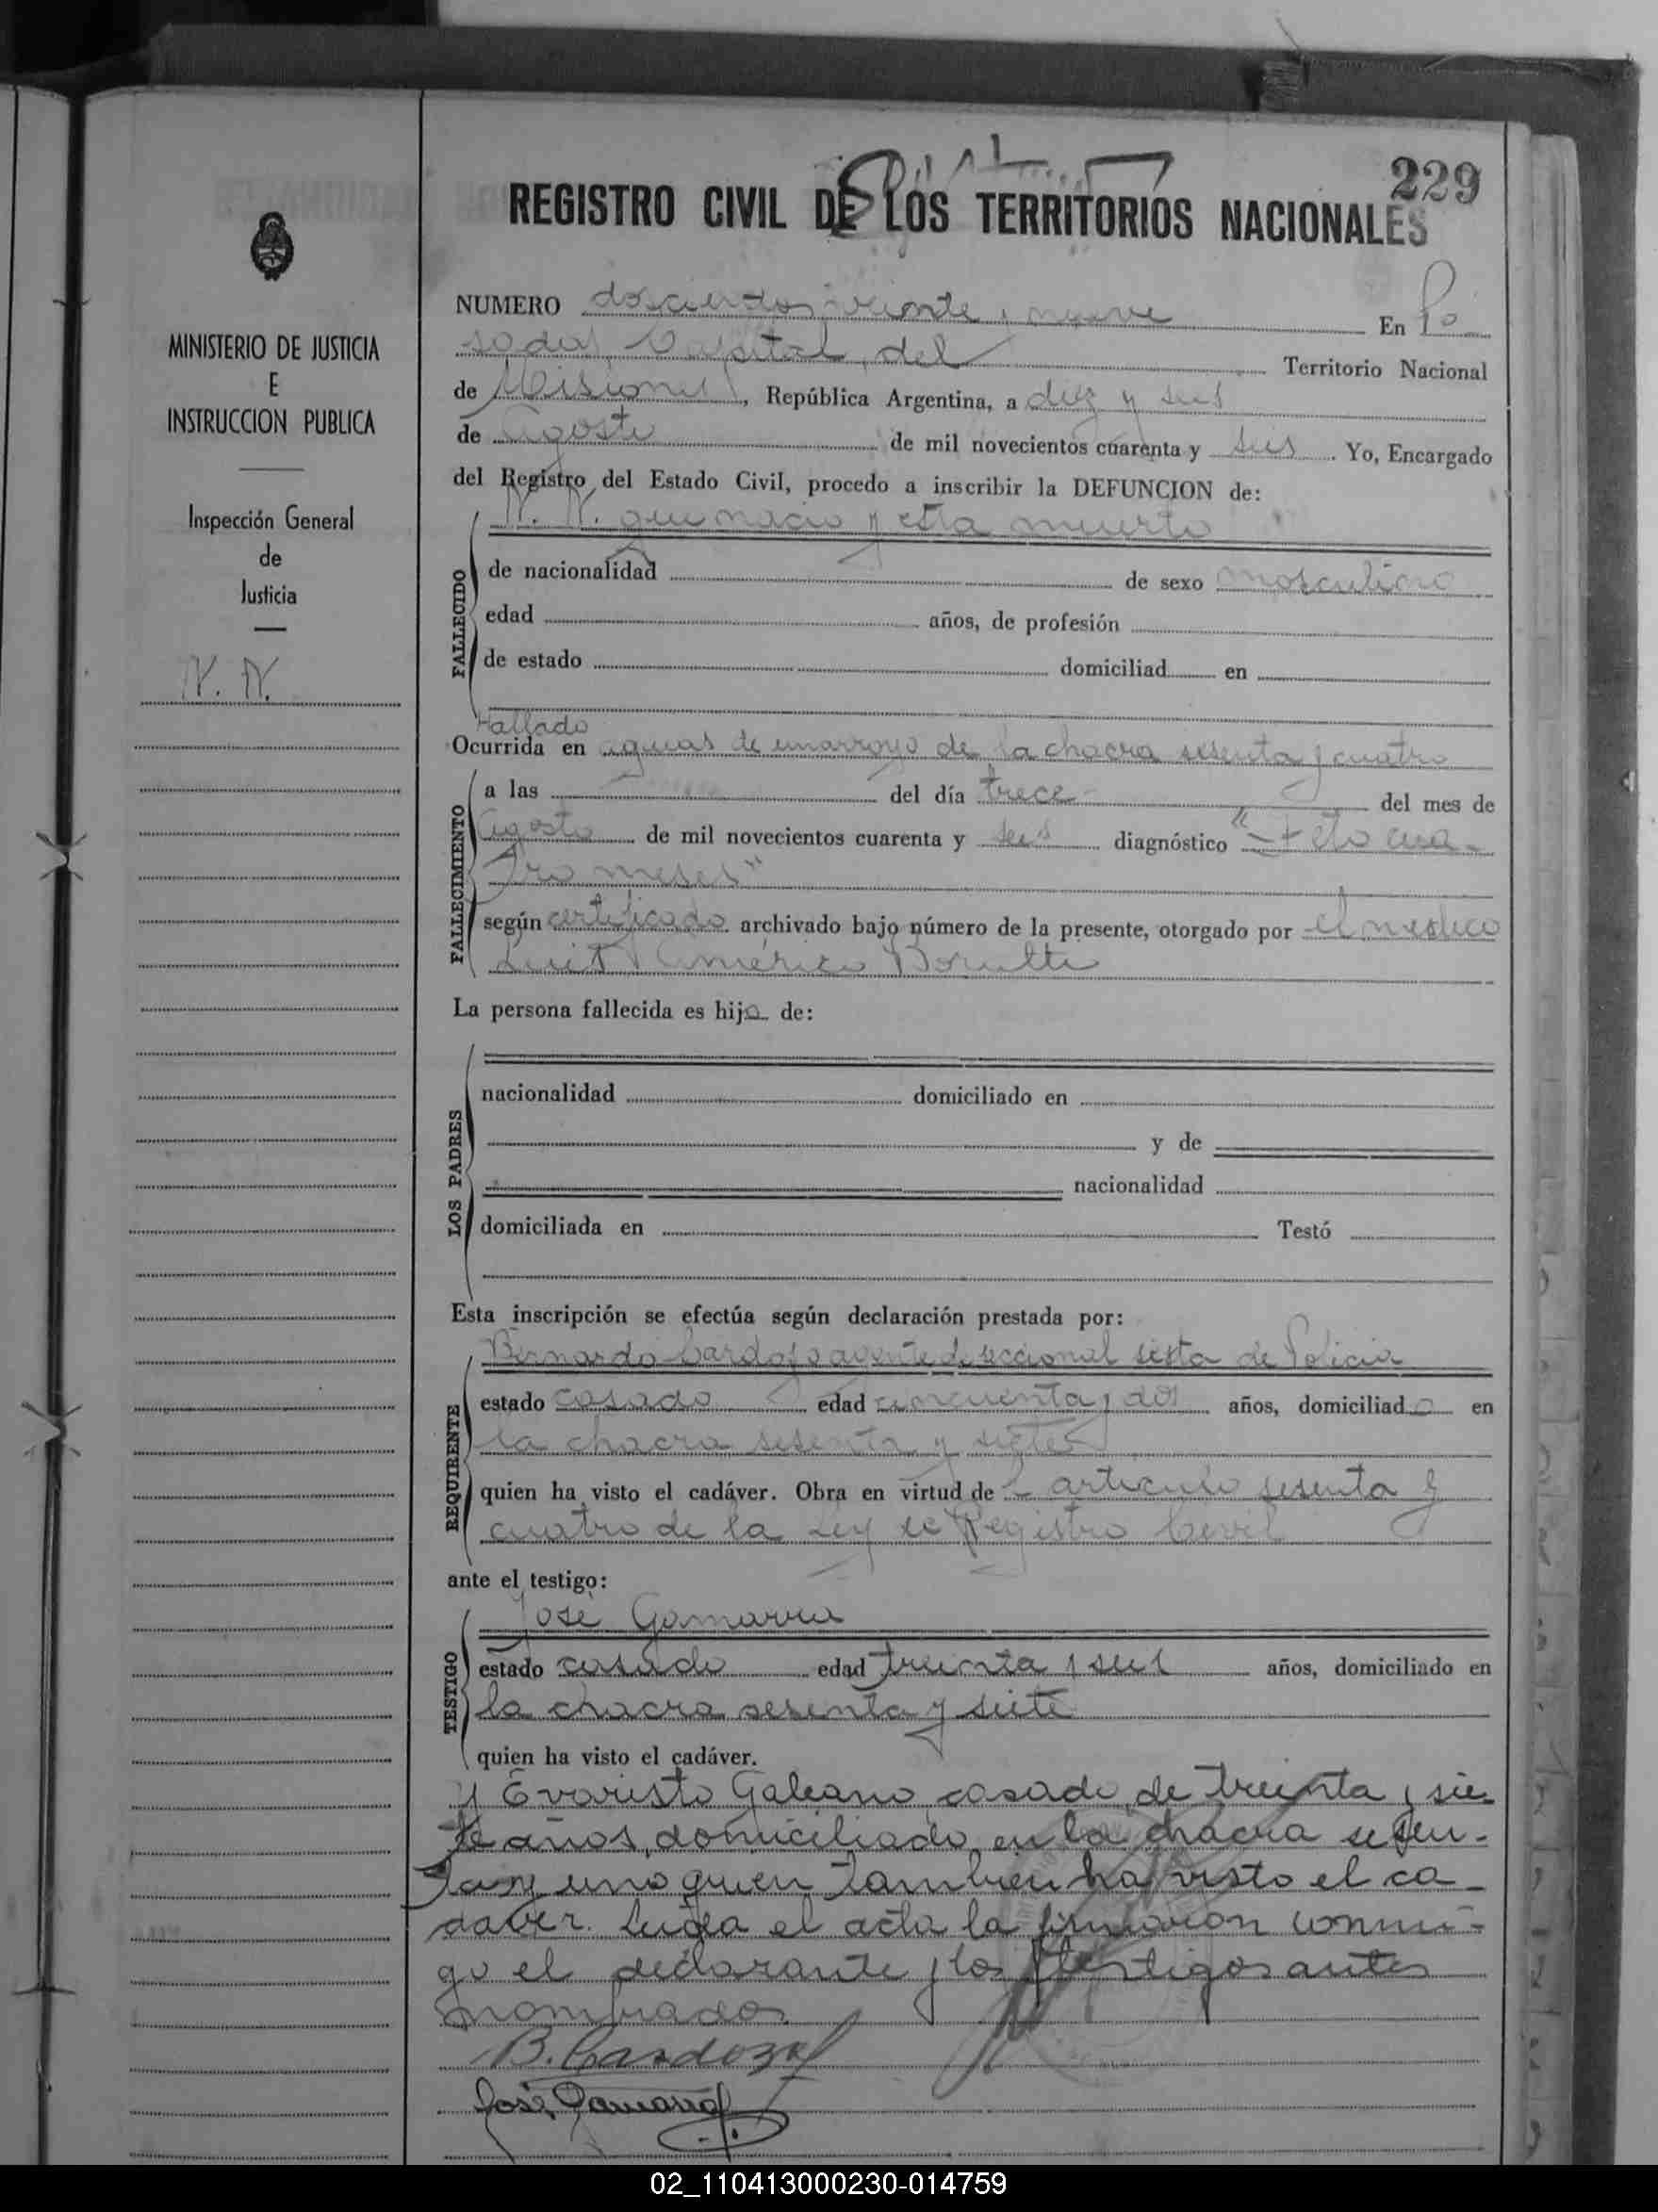 229
REGISTRO CIVIL DE LOS TERRITORIOS NACIONALES
MINISTERIO DE JUSTICIA
E
INSTRUCCION PUBLICA
Inspección General
de
Justicia
N. N.
NUMERO doscientos veinte y nueve En Po
sadas Capital del Territorio Nacional
de Misiones, República Argentina, a diez y seis
de Agosto de mil novecientos cuarenta y seis Yo, Encargado
del Registro del Estado Civil, procedo a inscribir la DEFUNCION de:
N. N. que nacio y esta muerto
FALLECIDO
de nacionalidad de sexo masculino
edad años, de profesión
de estado domiciliad en
Hallado
Ocurrida en aguas de un arroyo de la chacra sesenta y cuatro
FALLECIMIENTO
a las del día trece del mes de
Agosto de mil novecientos cuarenta y seis diagnóstico "Feto cua-
tro meses"
según certificado archivado bajo número de la presente, otorgado por el medico
Luis Américo
La persona fallecida es hijo de:
LOS PADRES
nacionalidad domiciliado en
y de
nacionalidad
domiciliada en Testó
Esta inscripción se efectúa según declaración prestada por:
REQUIRENTE
Bernardo Cardozo agente de seccional sexta de Policia
estado casado edad cincuenta y dos años, domiciliado en
la chacra sesenta y siete
quien ha visto el cadáver. Obra en virtud del articulo sesenta y
cuatro de la Ley de Registro Civil
ante el testigo:
TESTIGO
José Gamarra
estado casado edad treinta y seis años, domiciliado en
la chacra sesenta y siete
quien ha visto el cadáver.
y Evaristo Galeano casado, de treinta y sie-
te años, domiciliado en la chacra sesen-
ta y uno quien tambien ha visto el ca-
daver. Leida el acta la firmaron conmi-
go el declarante y los testigos antes
nombrados
B. Cardozo
José Gamarra
02_110413000230-014759